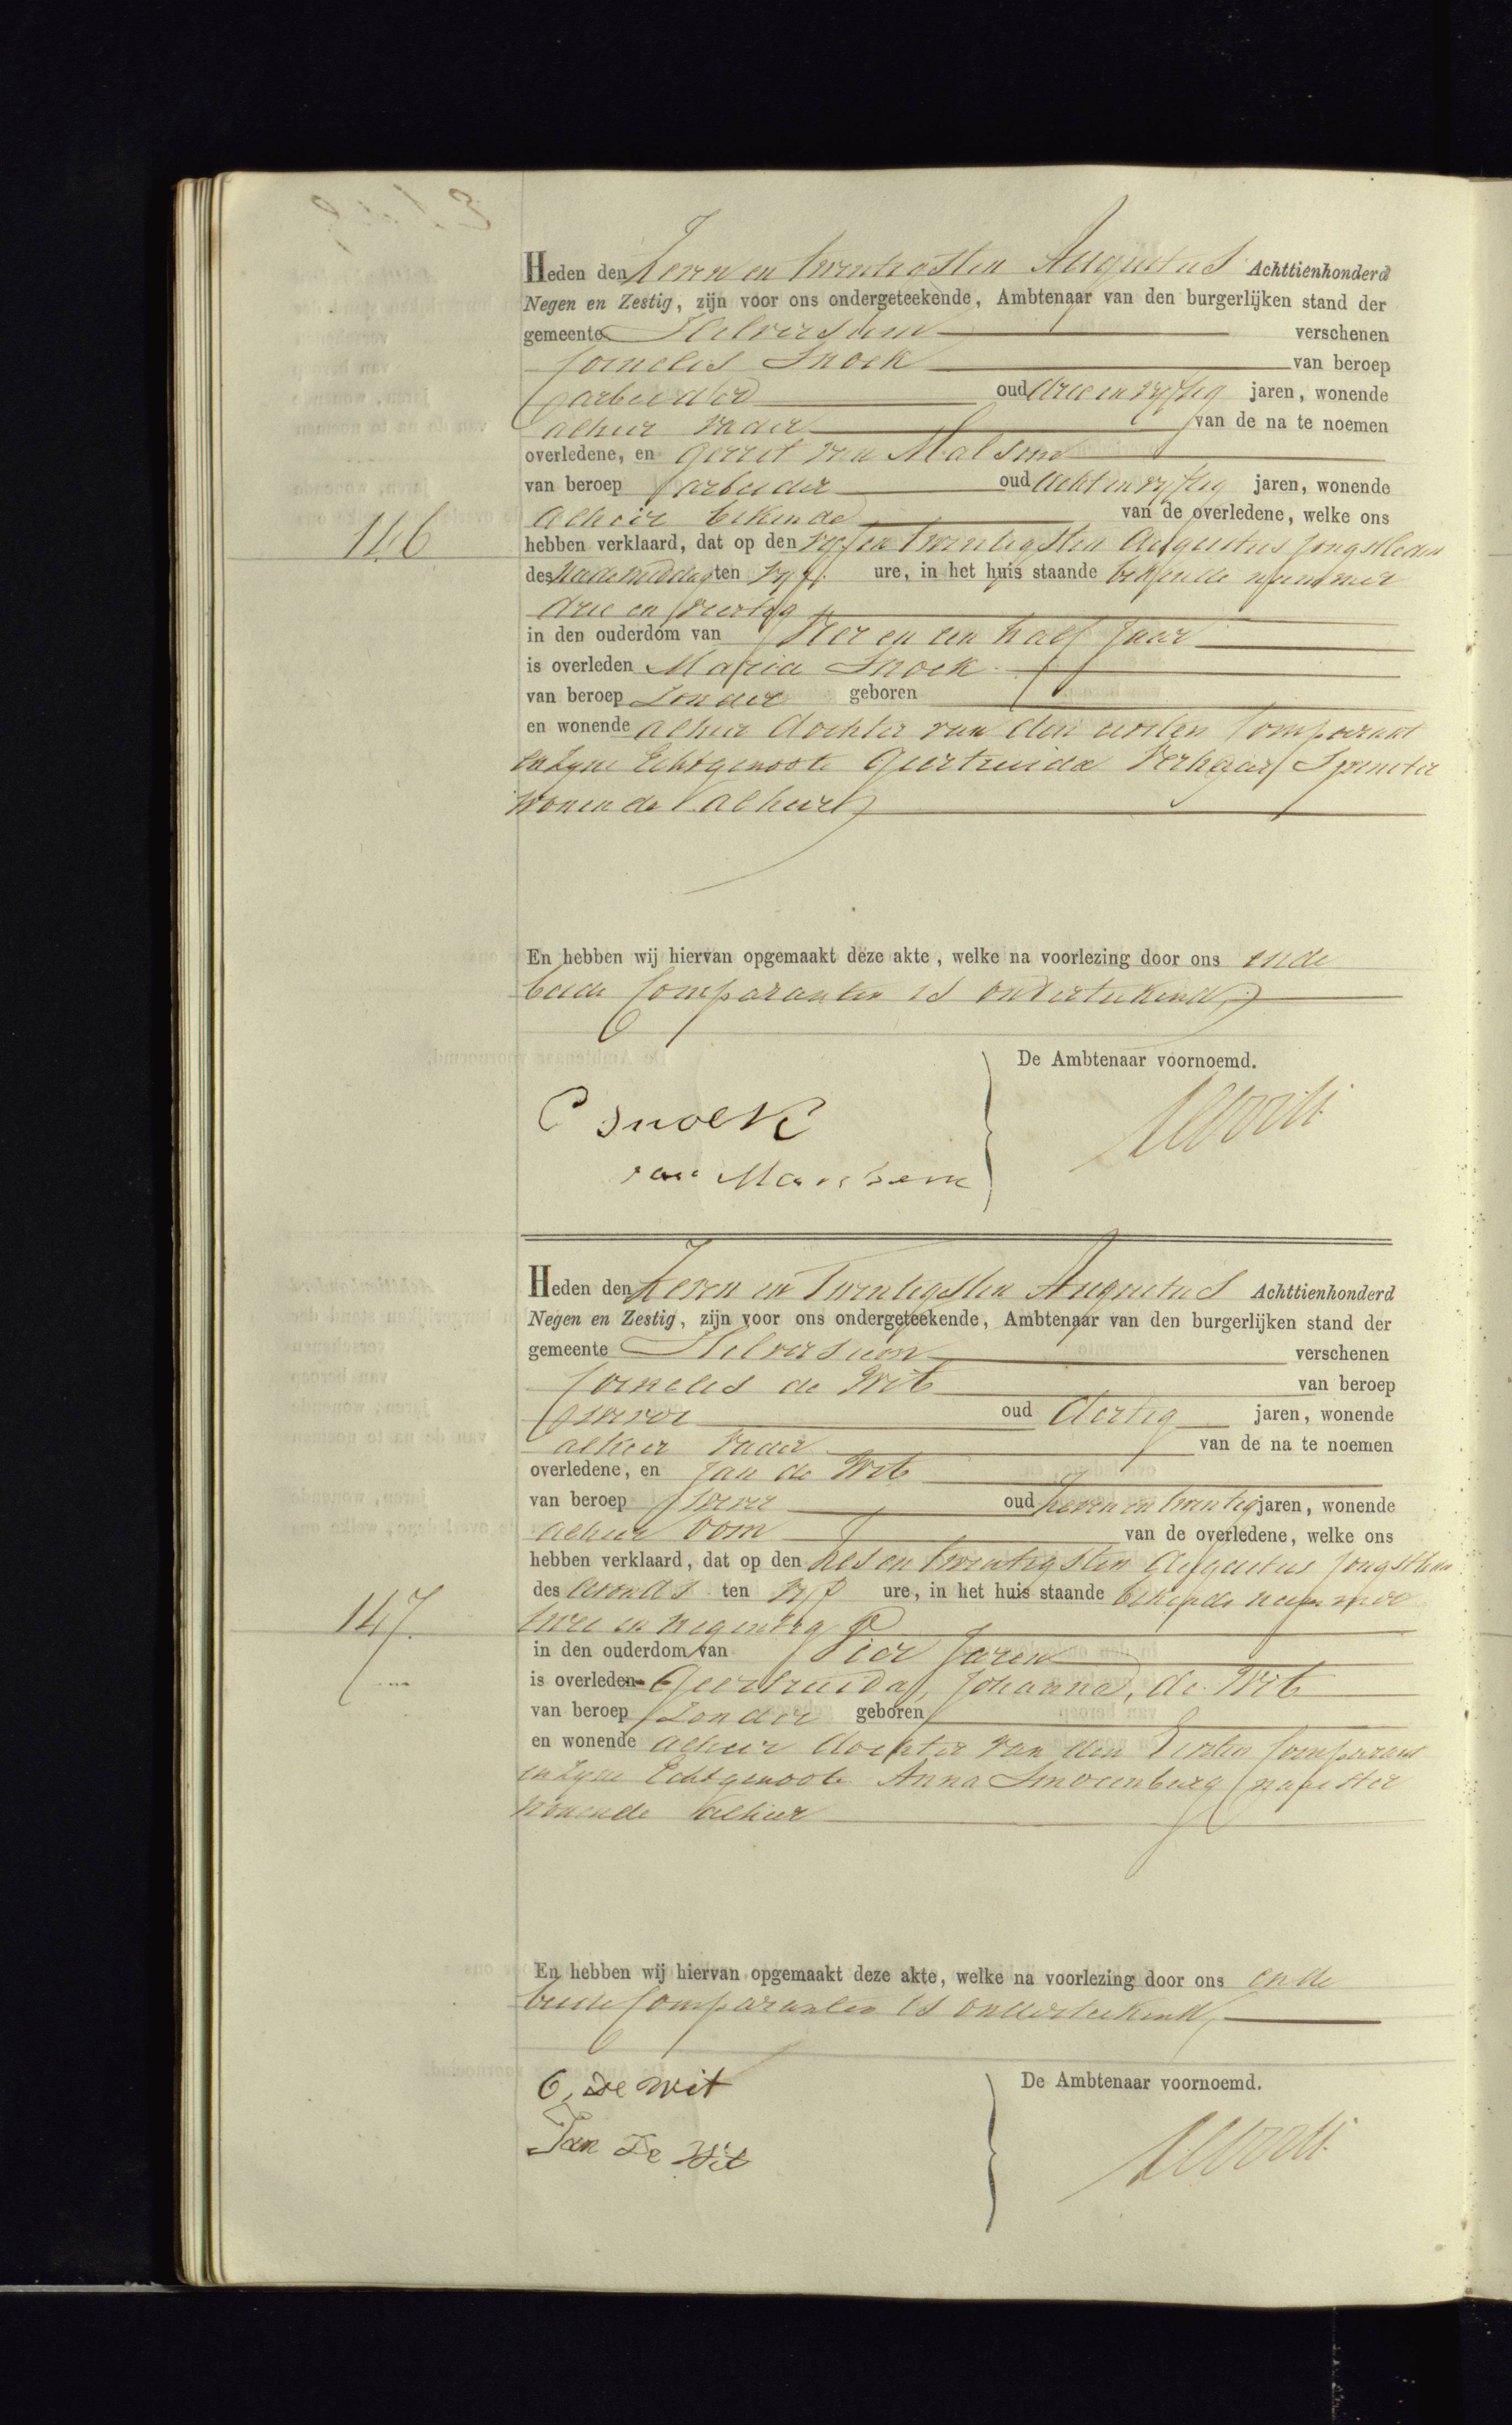 Heden den Zeven en twintigsten Augustus Achttienhonderd
Negen en Zestig, zijn voor ons ondergeteekende, Ambtenaar van den burgerlijken stand der
gemeente Hilversum verschenen
Cornelis Snoek van beroep
arbeider oud drie en vyftig jaren, wonende
alhier vader van de na te noemen
overledene, en Gerret van Malsem
van beroep arbeider oud acht en vyftig jaren, wonende
alhier bekende van de overledene, welke ons
146
hebben verklaard, dat op den vyf en twintigsten Augustus jongstleden
des Nademiddags ten vyf ure, in het huis staande bekende nummer
drie en veertig
in den ouderdom van Vier en een half jaar
is overleden Maria Snoek
van beroep Zonder geboren
en wonende alhier dochter van den eersten Comparant
en zyne Echtgenoote Geertruida Verhaar Spinster
wonende alhier
En hebben wij hiervan opgemaakt deze akte, welke na voorlezing door ons en de
beide Comparanten is onderteekend
De Ambtenaar voornoemd.
C Snoek
van
Heden den Zeven en Twentigsten Augustus Achttienhonderd
Negen en Zestig, zijn voor ons ondergeteekende, Ambtenaar van den burgerlijken stand der
gemeente Hilversum verschenen
Cornelis de Wit van beroep
wever oud dertig jaren, wonende
alhier vader van de na te noemen
overledene, en Jan de Wit
van beroep wever oud zeven en twentig jaren, wonende
alhier oom van de overledene, welke ons
hebben verklaard, dat op den zes en twentigsten Augustus jongstleden
des avonds ten vyf ure, in het huis staande bekende nummer
147
twee en negentig
in den ouderdom van Vier jaren
is overleden Geertruida, Johanna, de Wit
van beroep Zonder geboren
en wonende alhier dochter van den Eersten Comparant
en zyne Echtgenoote Anna naaister
wonende alhier
En hebben wij hiervan opgemaakt deze akte, welke na voorlezing door ons en de
beide Comparanten is onderteekend
De Ambtenaar voornoemd.
C, De Wit
Jan De Wit